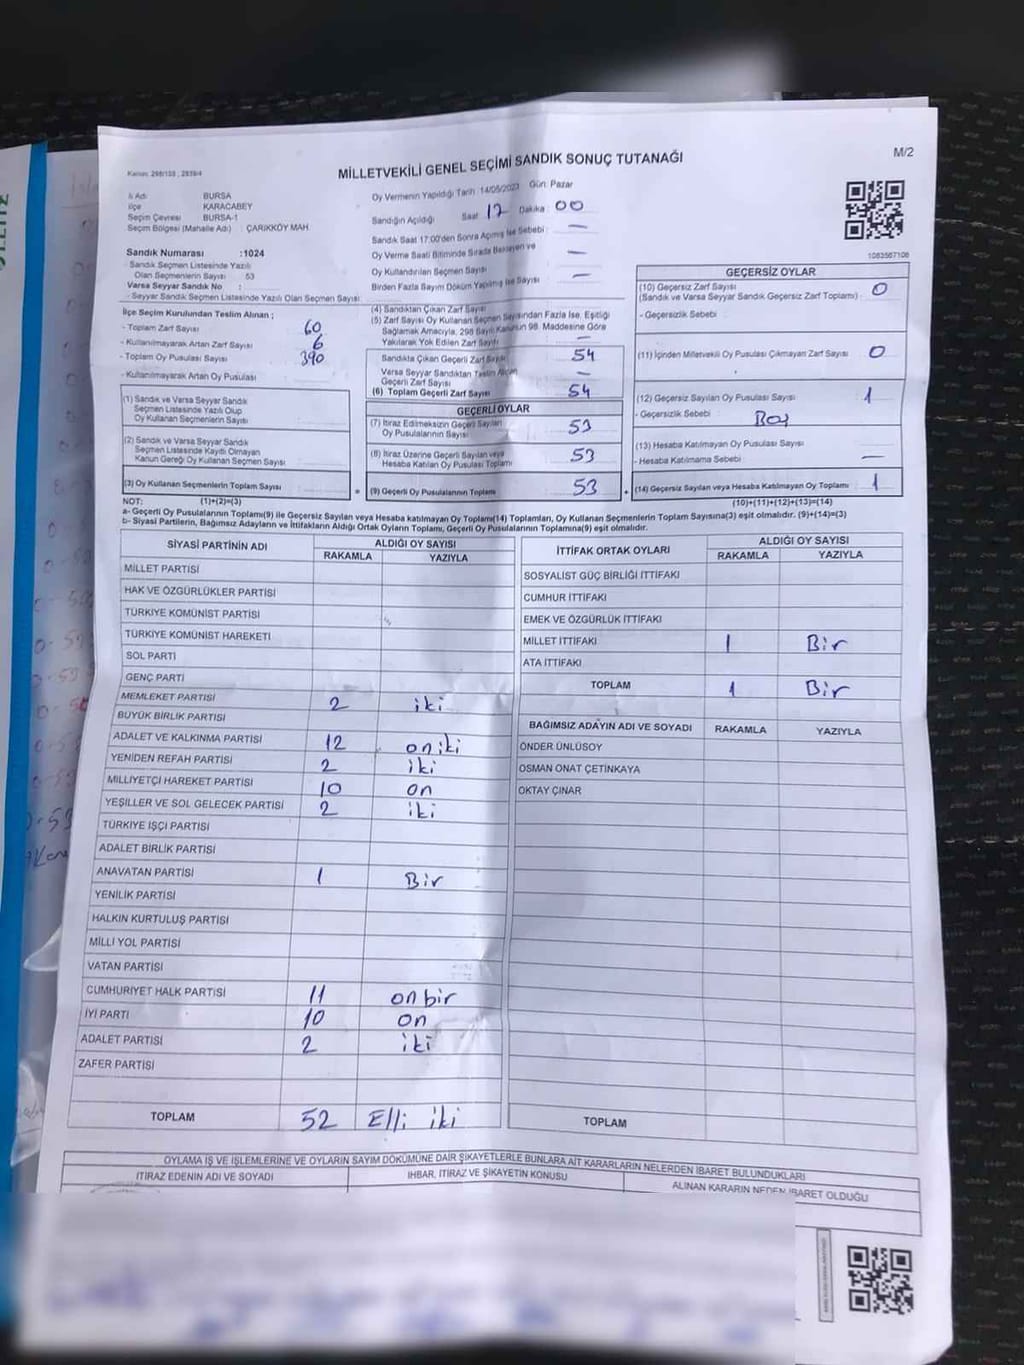 M/2
MİLLETVEKİLİ GENEL SEÇİMİ SANDIK SONUÇ TUTANAĞI
İl Adı BURSA
İlçe KARACABEY
Seçim Çevresi BURSA-1
Seçim Bölgesi (Mahalle Adı) ÇARIKKÖY MAH
Sandık Numarası :1024
Sandık Seçmen Listesinde Yazılı
Olan Seçmenlerin Sayısı 53
Varsa Seyyar Sandık No :
- Seyyar Sandık Seçmen Listesinde Yazılı Olan Seçmen Sayısı:
Oy Vermenin Yapıldığı Tarih 14/05/2023 Gün: Pazar
Sandığın Açıldığı Saat 17 Dakika : 00
Sandık Saat 17:00'den Sonra Açılmış İse Sebebi : —
Oy Verme Saati Bitiminde Sırada Bekleyen ve —
Oy Kullandırılan Seçmen Sayısı
Birden Fazla Sayım Döküm Yapılmış İse Sayısı —
1083567106
İlçe Seçim Kurulundan Teslim Alınan ;
- Toplam Zarf Sayısı 60
- Kullanılmayarak Artan Zarf Sayısı 6
- Toplam Oy Pusulası Sayısı 390
- Kullanılmayarak Artan Oy Pusulası
(1) Sandık ve Varsa Seyyar Sandık
Seçmen Listesinde Yazılı Olup
Oy Kullanan Seçmenlerin Sayısı
(2) Sandık ve Varsa Seyyar Sandık
Seçmen Listesinde Kaydı Olmayan
Kanun Gereği Oy Kullanan Seçmen Sayısı
(3) Oy Kullanan Seçmenlerin Toplam Sayısı
(1)+(2)=(3)
(4) Sandıktan Çıkan Zarf Sayısı
(5) Zarf Sayısı Oy Kullanan Seçmen Sayısından Fazla İse, Eşitliği
Sağlamak Amacıyla, 298 Sayılı Kanunun 98. Maddesine Göre
Yakılarak Yok Edilen Zarf Sayısı —
Sandıkta Çıkan Geçerli Zarf Sayısı 54
Varsa Seyyar Sandıktan Teslim Alınan —
Geçerli Zarf Sayısı
(6) Toplam Geçerli Zarf Sayısı 54
GEÇERLİ OYLAR
(7) İtiraz Edilmeksizin Geçerli Sayılan 53
Oy Pusulalarının Sayısı
(8) İtiraz Üzerine Geçerli Sayılan veya 53
Hesaba Katılan Oy Pusulası Toplamı
(9) Geçerli Oy Pusulalarının Toplamı 53
GEÇERSİZ OYLAR
(10) Geçersiz Zarf Sayısı 0
(Sandık ve Varsa Seyyar Sandık Geçersiz Zarf Toplamı) :
- Geçersizlik Sebebi
(11) İçinden Milletvekili Oy Pusulası Çıkmayan Zarf Sayısı 0
(12) Geçersiz Sayılan Oy Pusulası Sayısı 1
- Geçersizlik Sebebi : Boş
(13) Hesaba Katılmayan Oy Pusulası Sayısı
- Hesaba Katılmama Sebebi —
(14) Geçersiz Sayılan veya Hesaba Katılmayan Oy Toplamı 1
(10)+(11)+(12)+(13)=(14)
NOT:
a- Geçerli Oy Pusulalarının Toplamı(9) ile Geçersiz Sayılan veya Hesaba katılmayan Oy Toplamı(14) Toplamları, Oy Kullanan Seçmenlerin Toplam Sayısına(3) eşit olmalıdır. (9)+(14)=(3)
b- Siyasi Partilerin, Bağımsız Adayların ve İttifakların Aldığı Ortak Oyların Toplamı, Geçerli Oy Pusulalarının Toplamına(9) eşit olmalıdır.
SİYASİ PARTİNİN ADI ALDIĞI OY SAYISI
RAKAMLA YAZIYLA
MİLLET PARTİSİ
HAK VE ÖZGÜRLÜKLER PARTİSİ
TÜRKİYE KOMÜNİST PARTİSİ
TÜRKİYE KOMÜNİST HAREKETİ
SOL PARTİ
GENÇ PARTİ
MEMLEKET PARTİSİ 2 iki
BÜYÜK BİRLİK PARTİSİ
ADALET VE KALKINMA PARTİSİ 12 on iki
YENİDEN REFAH PARTİSİ 2 iki
MİLLİYETÇİ HAREKET PARTİSİ 10 on
YEŞİLLER VE SOL GELECEK PARTİSİ 2 iki
TÜRKİYE İŞÇİ PARTİSİ
ADALET BİRLİK PARTİSİ
ANAVATAN PARTİSİ 1 Bir
YENİLİK PARTİSİ
HALKIN KURTULUŞ PARTİSİ
MİLLİ YOL PARTİSİ
VATAN PARTİSİ
CUMHURİYET HALK PARTİSİ 11 on bir
İYİ PARTİ 10 on
ADALET PARTİSİ 2 iki
ZAFER PARTİSİ
TOPLAM 52 Elli iki
İTTİFAK ORTAK OYLARI ALDIĞI OY SAYISI
RAKAMLA YAZIYLA
SOSYALİST GÜÇ BİRLİĞİ İTTİFAKI
CUMHUR İTTİFAKI
EMEK VE ÖZGÜRLÜK İTTİFAKI
MİLLET İTTİFAKI 1 Bir
ATA İTTİFAKI
TOPLAM 1 Bir
BAĞIMSIZ ADAYIN ADI VE SOYADI RAKAMLA YAZIYLA
ÖNDER ÜNLÜSOY
OSMAN ONAT ÇETİNKAYA
OKTAY ÇINAR
TOPLAM
OYLAMA İŞ VE İŞLEMLERİNE VE OYLARIN SAYIM DÖKÜMÜNE DAİR ŞİKAYETLERLE BUNLARA AİT KARARLARIN NELERDEN İBARET BULUNDUKLARI
İTİRAZ EDENİN ADI VE SOYADI İHBAR, İTİRAZ VE ŞİKAYETİN KONUSU ALINAN KARARIN NEDEN İBARET OLDUĞU